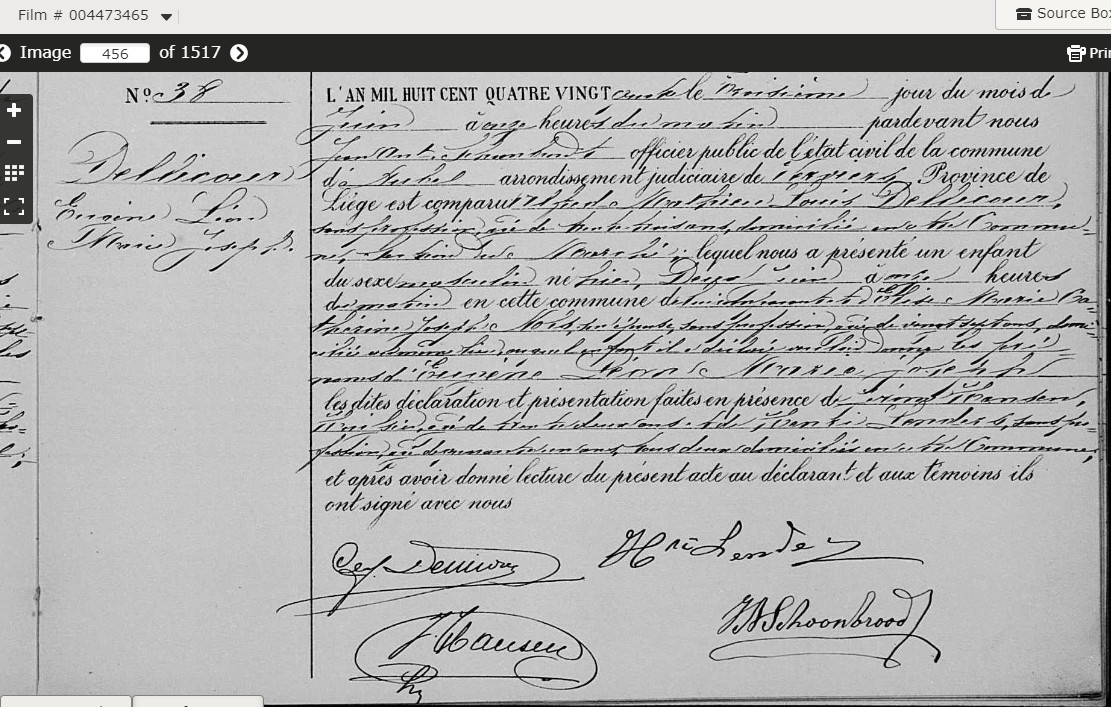 Film # 004473465
Source Box
Image 456 of 1517
Print
Nº 38
Dellicour
Eugène Léon
Marie Joseph
L'AN MIL HUIT CENT QUATRE VINGT le troisième jour du mois de
Juin à onze heures du matin pardevant nous
officier public de l'état civil de la commune
d arrondissement judiciaire de Verviers, Province de
Liège est comparu Alfred Mathieu Louis Dellicour,
sans profession, âgé de trente trois ans, domicilié en cette Commu-
ne, lequel nous a présenté un enfant
du sexe masculin né hier, Deux Juin à onze heures
du matin en cette commune de Elise Marie Ca-
therine Josèphe son épouse, sans profession, âgée de vingt sept ans, domi-
ciliée au même lieu, auquel enfant il déclaré vouloir donner les pré-
noms d'Eugène Léon Marie Joseph
les dites déclaration et présentation faites en présence de Hansen,
âgé de trente deux ans et de Henri Lendes, sans pro-
fession, tous deux domiciliés en cette Commune,
et après avoir donné lecture du présent acte au déclarant et aux témoins ils
ont signé avec nous
Hri Lendes
Hansen
Schoonbrood